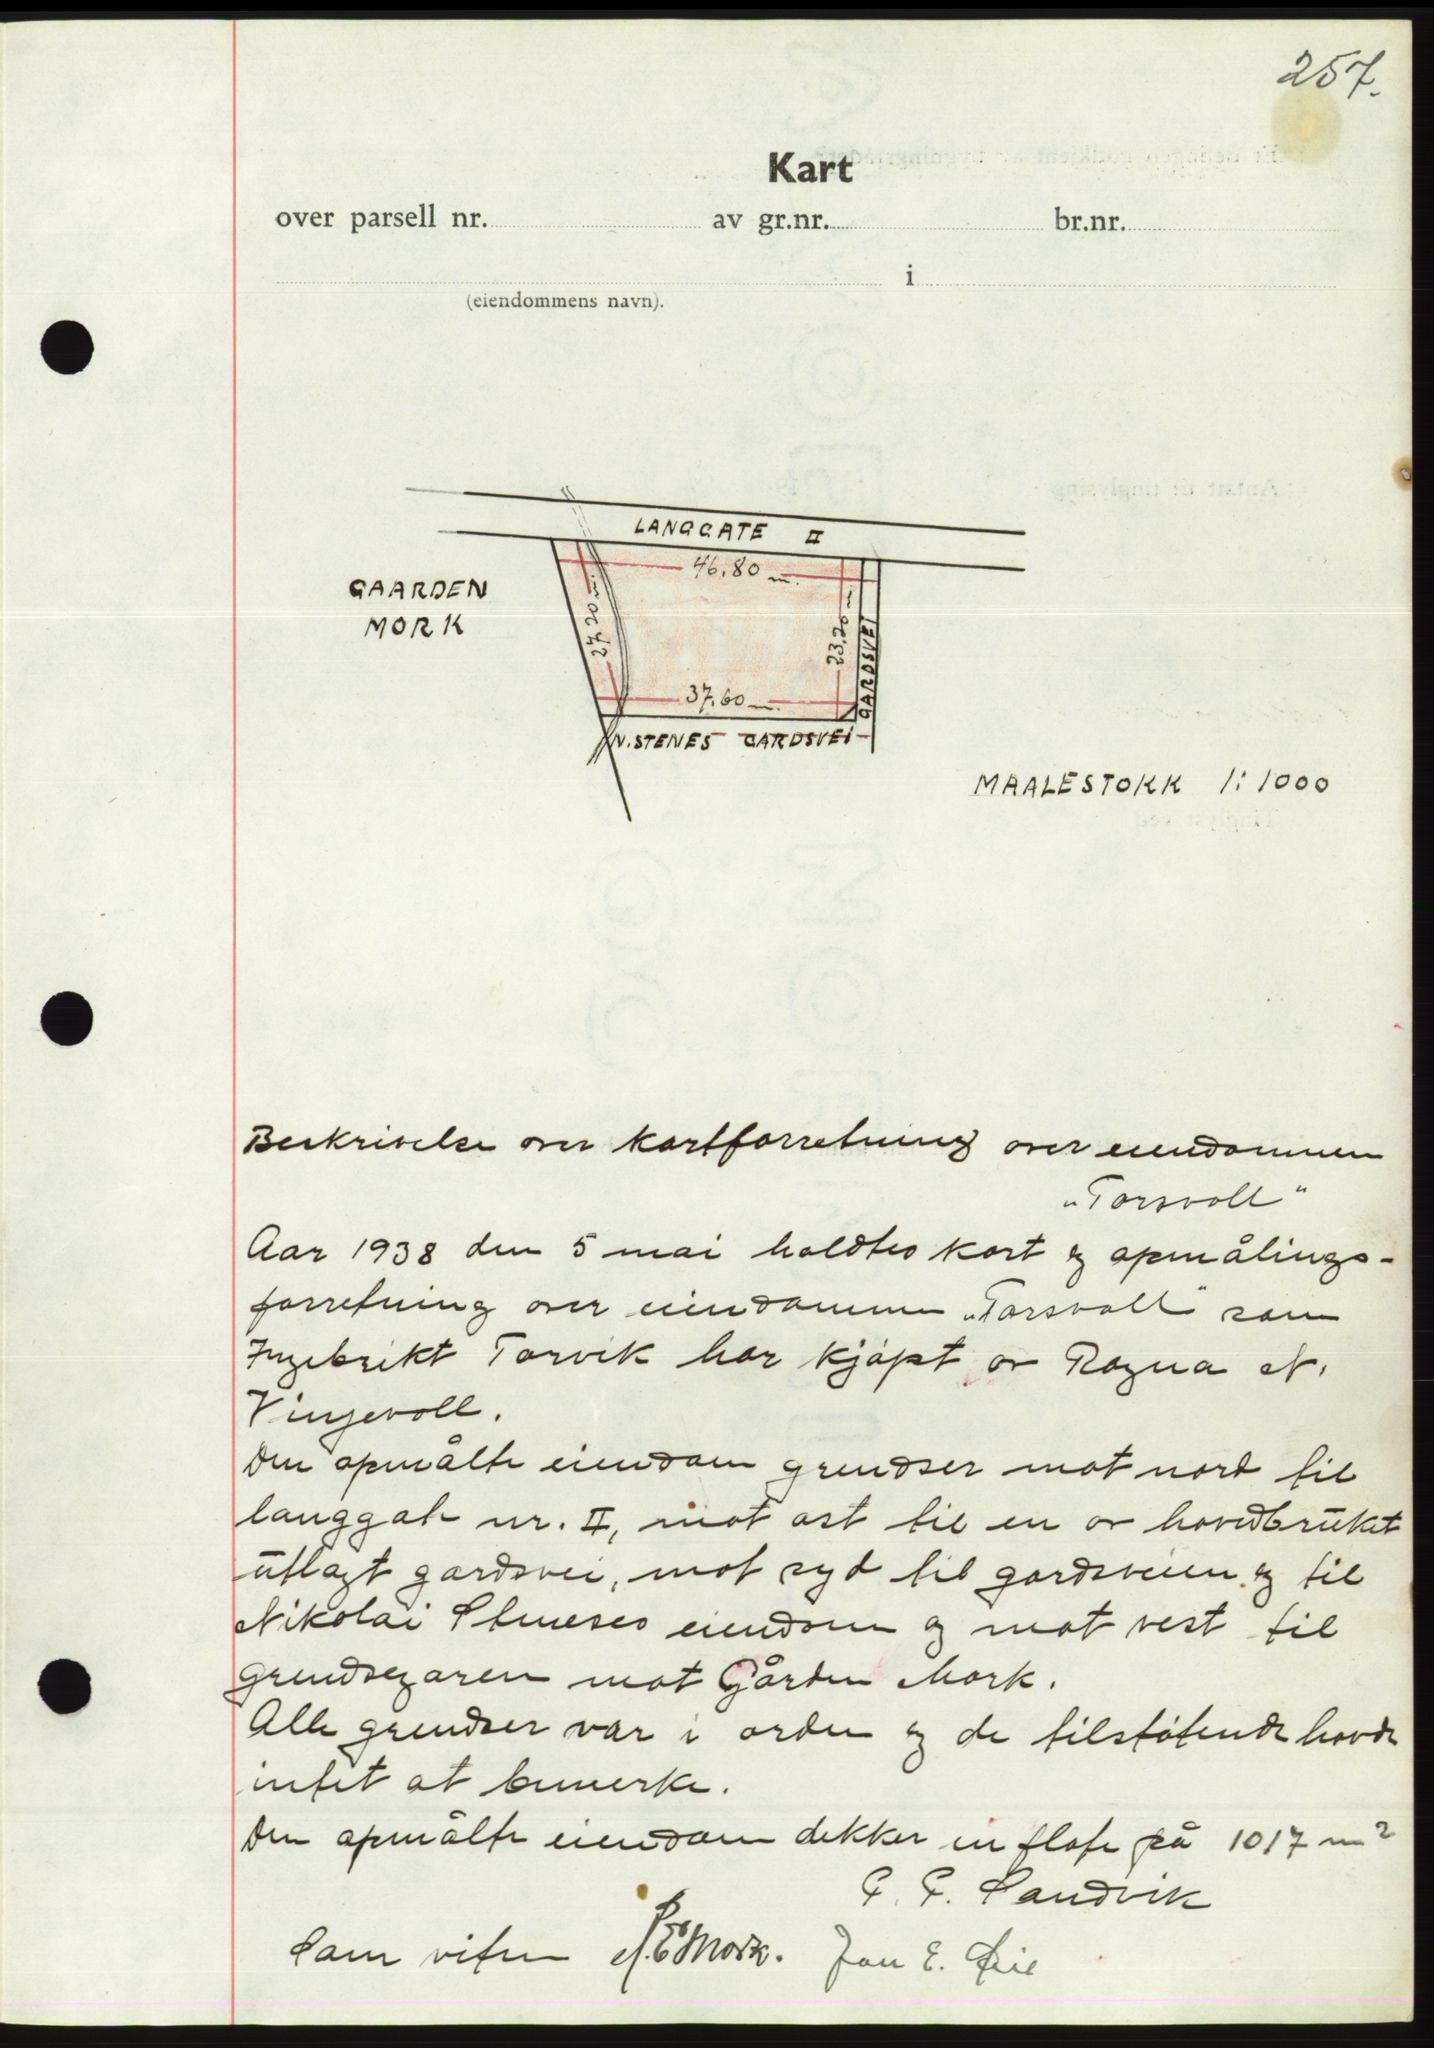 257.
Kart
over parsell nr. av gr.nr. br.nr.
i
(eiendommens navn).
LANGGATE II
46,80 m.
GAARDEN
MORK
27,20 m.
23,20 m.
GARDSVEI
37,60 m.
N. STENES GARDSVEI
MAALESTOKK 1:1000
Beskrivelse over kartforretning over eiendommen
"Torsvoll"
Aar 1938 den 5 mai holdtes kart og opmålings-
forretning over eiendommen "Torsvoll" som
Ingebrikt Torvik har kjøpt av Ragna N.
Vingevoll.
Den opmålte eiendom grendser mot nord til
langgate nr. II, mot øst til en av hovedbruket
utlagt gardsvei, mot syd til gardsveien og til
Nikolai Steneses eiendom og mot vest til
grendsegaren mot Gården Mork.
Alle grendser var i orden og de tilstøtende havde
intet at bemerke.
Den opmålte eiendom dekker en flate på 1017 m²
P. P. Sandvik
Som vitne Mork. Jon E. Øie